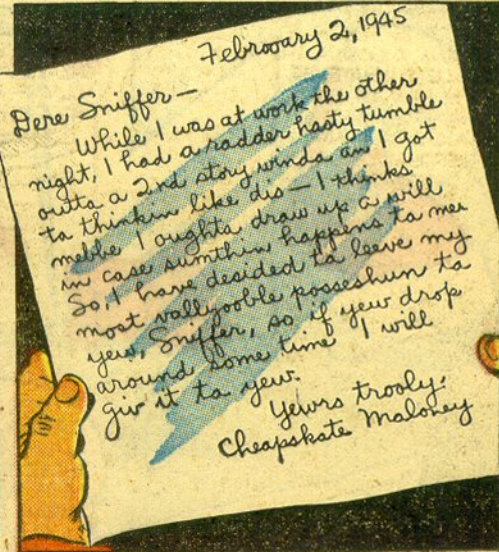 Febrooary 2, 1945
Dere Sniffer—
While I was at work the other
night, I had a radder hasty tumble
outta a 2nd story winda an I got
ta thinkin like dis— I thinks
mebbe I oughta draw up a will
in case sumthin happens ta me.
So, I have decided ta leeve my
most vallyooble posseshun ta
yew, Sniffer, so if yew drop
around some time I will
giv it ta yew.
Yewrs trooly.
Cheapskate Maloney